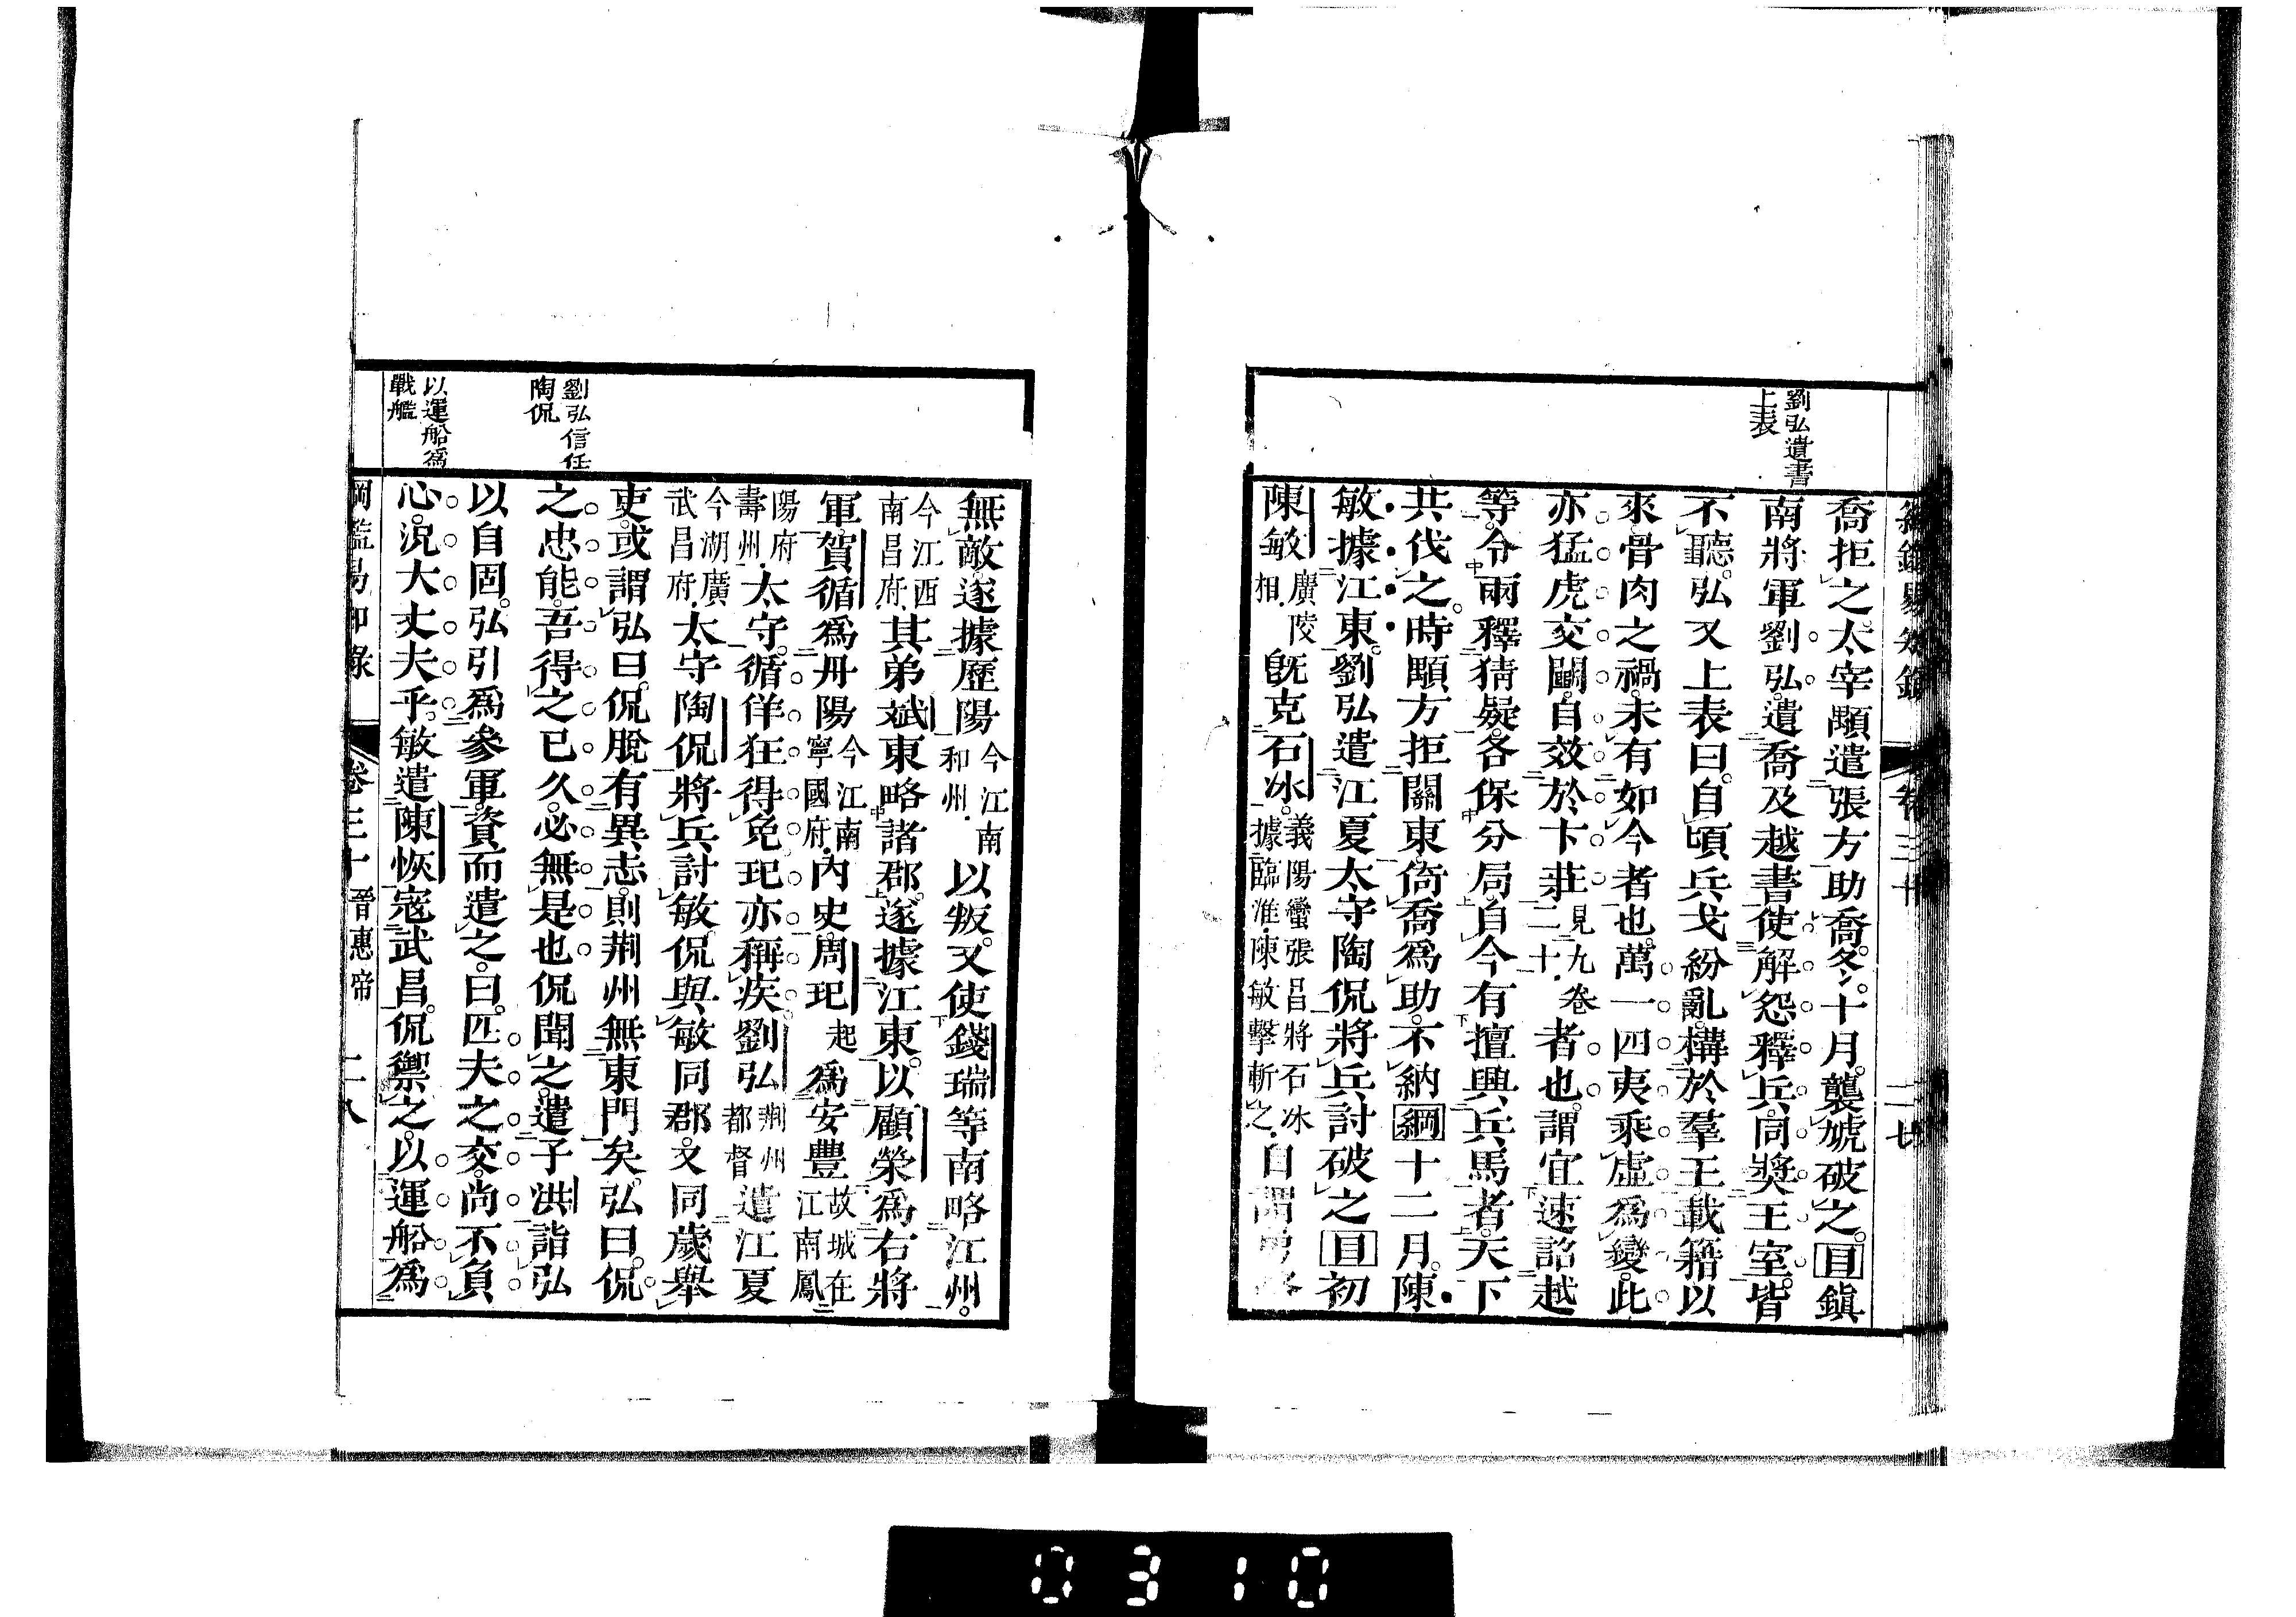 劉弘遺書
上表
卷三十
二十七
喬拒之。太宰顒遣張方助喬。冬。十月。襲虓破之。目鎭
南將軍劉弘。遺喬及越書。使解怨釋兵。同獎王室。皆
不聽。弘又上表曰。自頃兵戈紛亂。構於羣王。載籍以
來骨肉之禍。未有如今者也。萬一四夷乘虛爲變。此
亦猛虎交鬭。自效於卞莊見九卷二十者也。謂宜速詔越
等。令兩釋猜疑。各保分局。自今有擅興兵馬者。天下
共伐之。時顒方拒關東。倚喬爲助。不納綱十二月。陳
敏據江東。劉弘遣江夏太守陶侃將兵討破之目初
陳敏廣陵相既克石冰。義陽蠻張昌將石冰據臨淮陳敏擊斬之自謂勇
無敵。遂據歷陽今江南和州以叛。又使錢瑞等南略江州。
今江西南昌府其弟斌東略諸郡。遂據江東。以顧榮爲右將
軍賀循爲丹陽今江南寧國府內史。周玘起爲安豐故城在江南鳳
陽府壽州太守。循佯狂得免。玘亦稱疾。劉弘荆州都督遣江夏
今湖廣武昌府太守陶侃將兵討敏。侃與敏同郡。又同歲舉
吏。或謂弘曰。侃脫有異志。則荆州無東門矣。弘曰。侃
之忠能。吾得之已久。必無是也。侃聞之。遣子洪詣弘
以自固。弘引爲參軍。資而遣之。曰。匹夫之交。尚不負
心。況大丈夫乎。敏遣陳恢寇武昌。侃禦之。以運船爲
劉弘信任
陶侃
以運船爲
戰艦
綱鑑易知錄
卷三十
晉惠帝
二八
0310